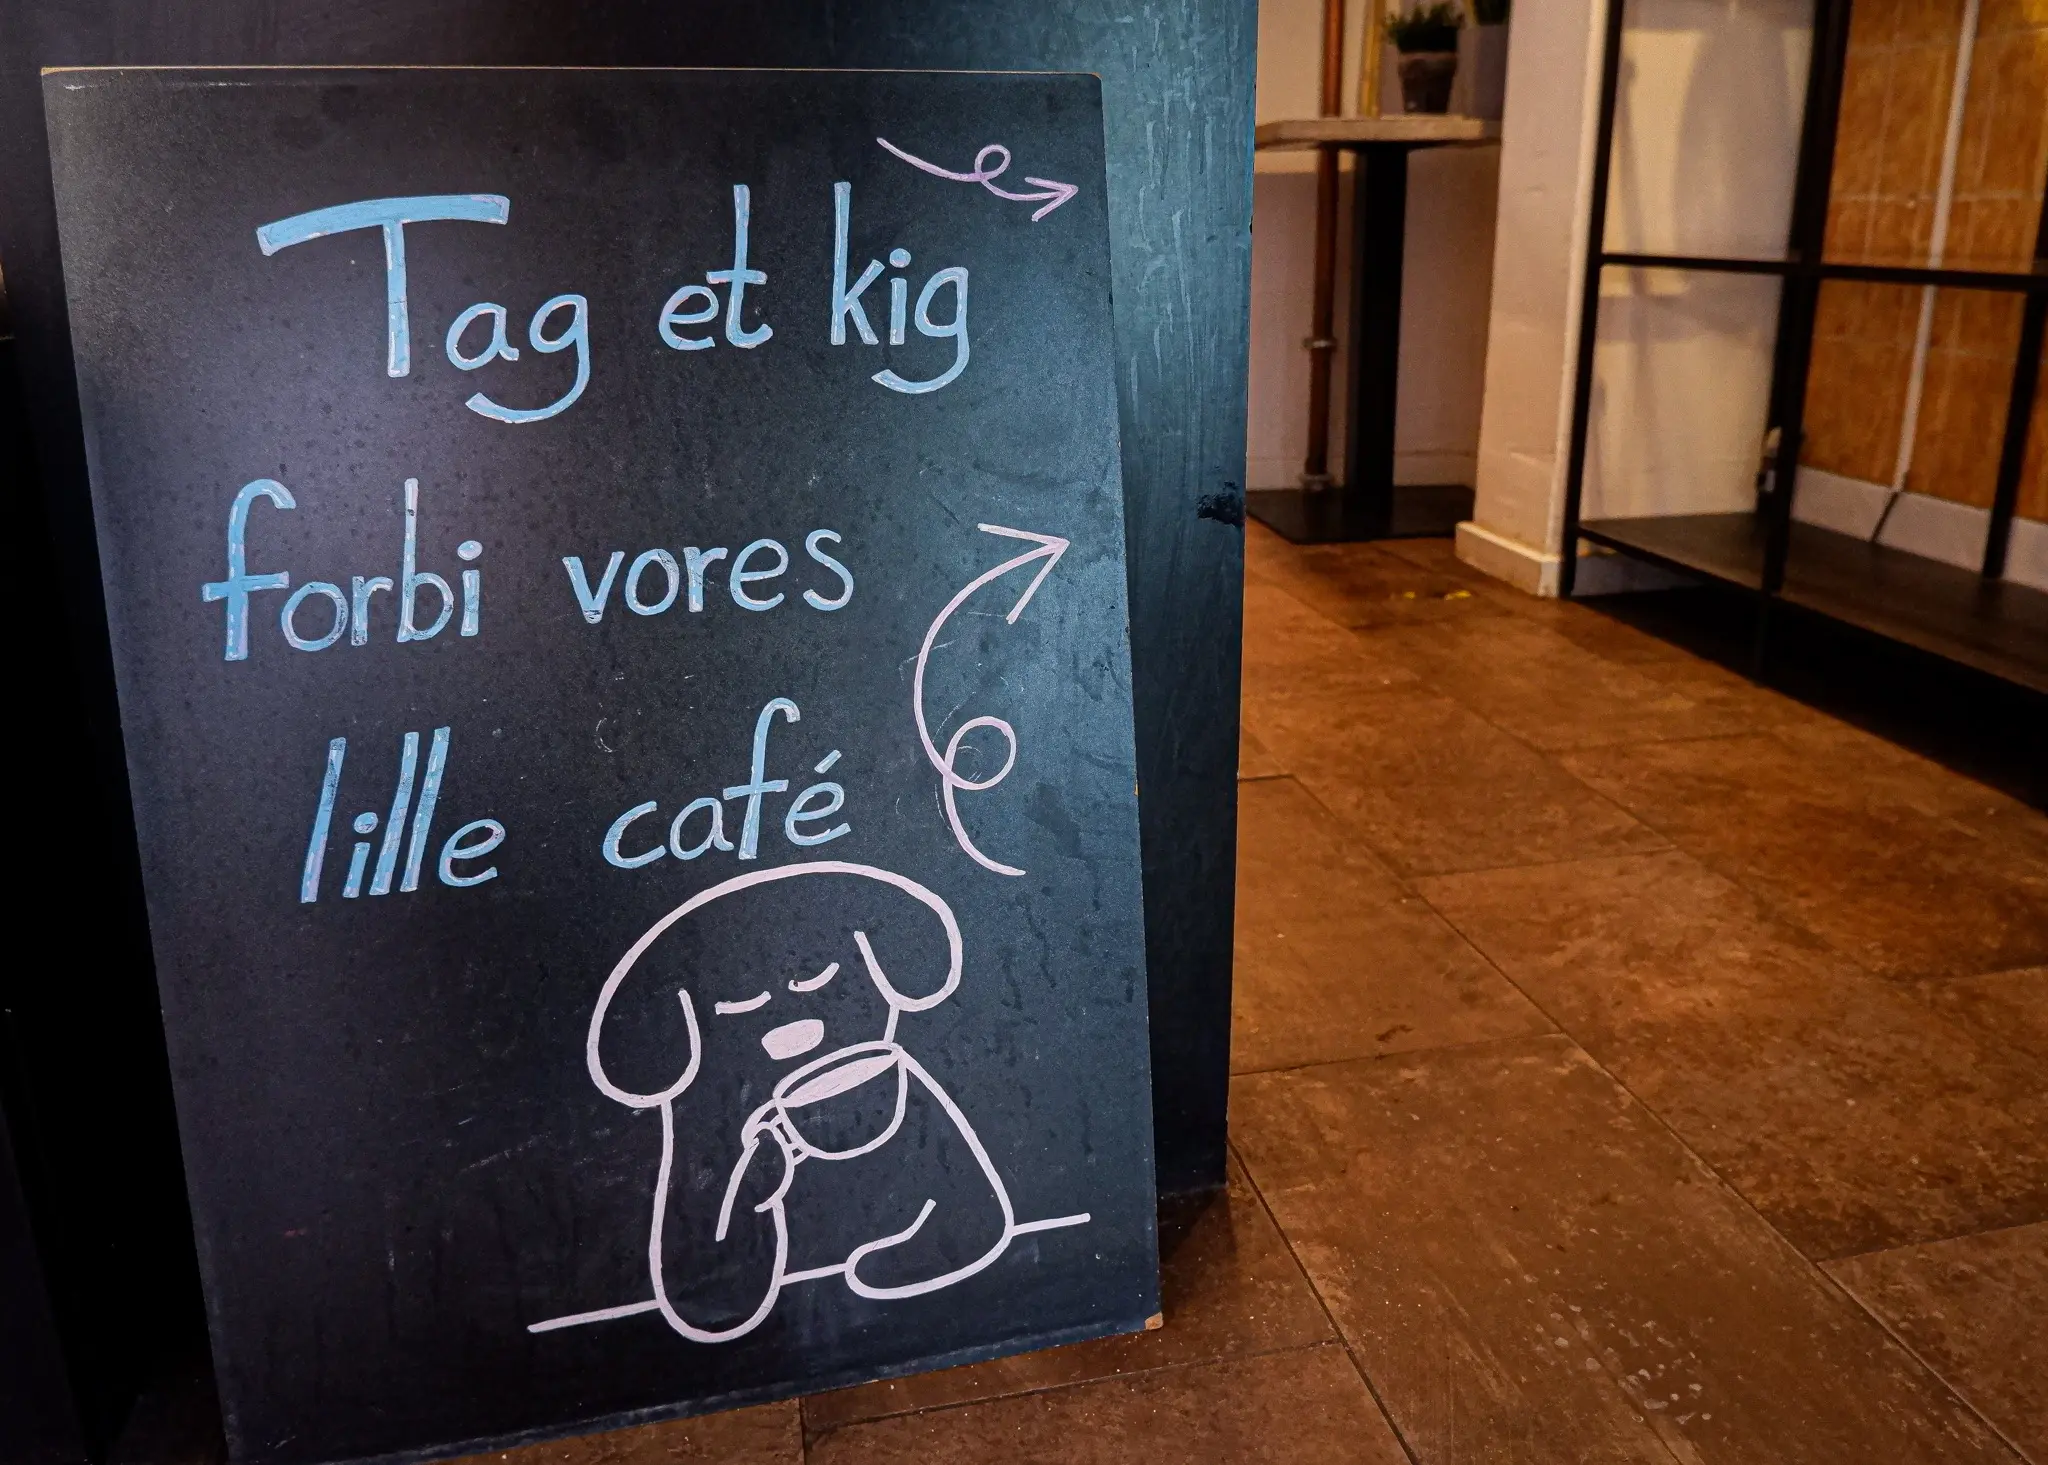 Tag et kig
forbi vores
lille café